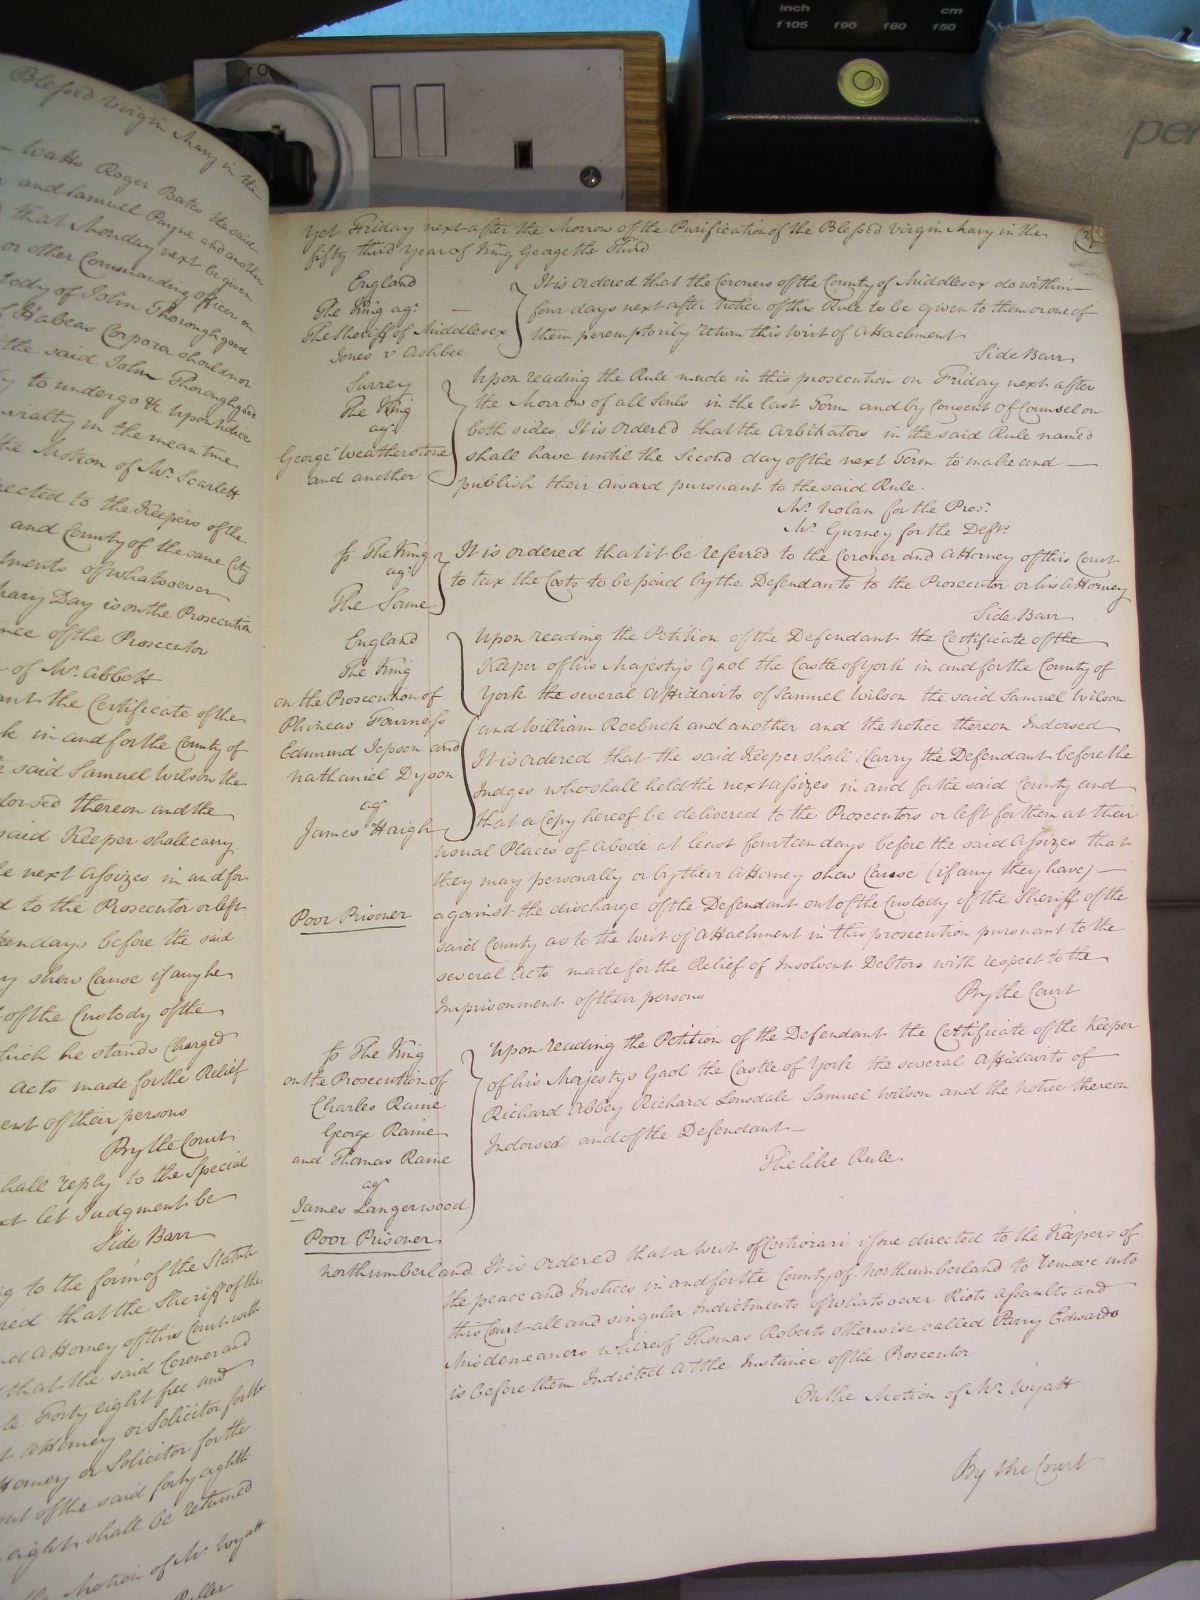 inch
cm
f105 f90 f80 f50
per
Blessed Virgin Mary in the
Watts Roger Bates the said
and Samuel Payne and another
that Monday next be given
or other Commanding officer on
tody of John Thoroughgood
Habeas Corpora should not
the said John Thoroughgood
to undergo &c upon notice
in the mean time
the Motion of Mr. Scarlett
rected to the Keepers of the
and County of the same City
tments of whatsoever
nary Day is on the Prosecution
nce of the Prosecutor
of Mr. Abbott
ant the Certificate of the
k in and for the County of
e said Samuel Wilson the
dorsed thereon and the
said Keeper shall carry
e next Assizes in and for
d to the Prosecutor or left
teen days before the said
y shew Cause if any he
of the Custody of the
which he stands Charged
Acts made for the Relief
ent of their persons
By the Court
hall reply to the Special
xt let Judgment be
Side Barr
ng to the form of the Statute
red that the Sheriff of the
nd Attorney of this Court with
that the said Coroner and
te Forty eight free and
t Attorney or Solicitor for the
ttorney or Solicitor for the
out of the said forty eight
eight shall be returned
the Motion of Mr. Wyatt
Yet Friday next after the Morrow of the Purification of the Blessed Virgin Mary in the
fifty third Year of King George the Third
England
The King agt.
The Sheriff of Middlesex
Jones v Ashbee
It is ordered that the Coroners of the County of Middlesex do within
four days next after notice of this Rule to be given to them or one of
them peremptorily return this Writ of Attachment
Side Barr
Surrey
The King
agt.
George Weatherstone
and another
Upon reading the Rule made in this prosecution on Friday next after
the Morrow of all Souls in the last Term and by Consent of Counsel on
both sides It is Ordered that the Arbitrators in the said Rule named
shall have until the Second day of the next Term to make and
publish their award pursuant to the said Rule.
Mr. Nolan for the Prosr.
Mr. Gurney for the Defts.
So The King
agt.
The Same
It is ordered that it be referred to the Coroner and Attorney of this Court
to tax the Costs to be paid by the Defendants to the Prosecutor or his Attorney
Side Barr
England
The King
on the Prosecution of
Phineas Fourness
Edmund Jepson and
Nathaniel Dyson
agt
James Haigh
Poor Prisoner
Upon reading the Petition of the Defendant the Certificate of the
Keeper of his Majesty's Gaol the Castle of York in and for the County of
York the several Affidavits of Samuel Wilson the said Samuel Wilson
and William Roebuck and another and the notice thereon Indorsed
It is ordered that the said Keeper shall Carry the Defendant before the
Judges who shall hold the next Assizes in and for the said County and
that a Copy hereof be delivered to the Prosecutors or left for them at their
usual Places of Abode at least fourteen days before the said Assizes that
they may personally or by their Attorney shew Cause (if any they have)
against the discharge of the Defendant out of the Custody of the Sheriff of the
said County as to the Writ of Attachment in this prosecution pursuant to the
several Acts made for the Relief of Insolvent Debtors with respect to the
Imprisonment of their persons
By the Court
So The King
on the Prosecution of
Charles Raine
George Raine
and Thomas Raine
agt
James Langerwood
Poor Prisoner
Upon reading the Petition of the Defendant the Certificate of the Keeper
of his Majestys Gaol the Castle of York the several Affidavits of
Richard Abbey Richard Lonsdale Samuel Wilson and the notice thereon
Indorsed and of the Defendant
The like Rule
Northumberland It is ordered that a Writ of Certiorari issue directed to the Keepers of
the peace and Justices in and for the County of Northumberland to remove into
this Court all and singular Indictments of whatsoever Riots assaults and
Misdemeanors whereof Thomas Roberts otherwise called Parry Edwards
is before them Indicted At the Instance of the Prosecutor
On the Motion of Mr. Wyatt
By the Court